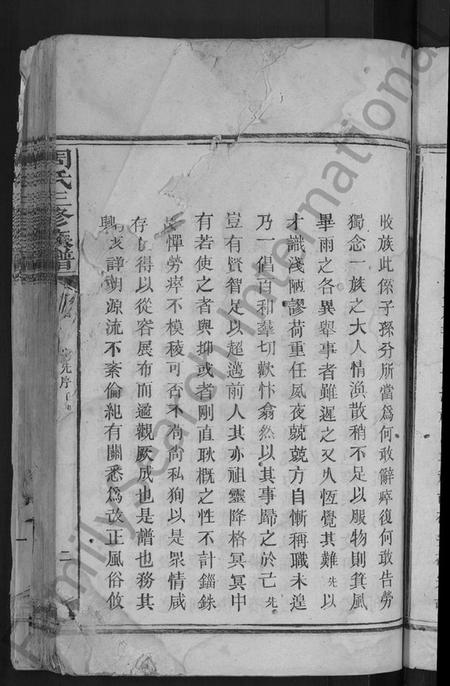 收族此係子孫分所當爲何敢辭瘁復何敢告勞
獨念一族之大人情渙散稍不足以服物則箕風
畢雨之各異舉事者雖遲之又久恆覺其難先以
才識淺陋謬荷重任夙夜兢兢方自慚稱職未遑
乃一倡百和羣切歡忭翕然以其事歸之於己先
豈有賢智足以超邁前人其亦祖靈降格冥冥中
有若使之者與抑或者剛直耿概之性不計錙銖
憚勞瘁不模稜可否不尚私狥以是眾情咸
存得以從容展布而遹觀厥成也是譜也務其
興亥詳明源流不紊倫紀有關悉爲改正風俗攸
周氏三修族譜
先序
二
FamilySearch International